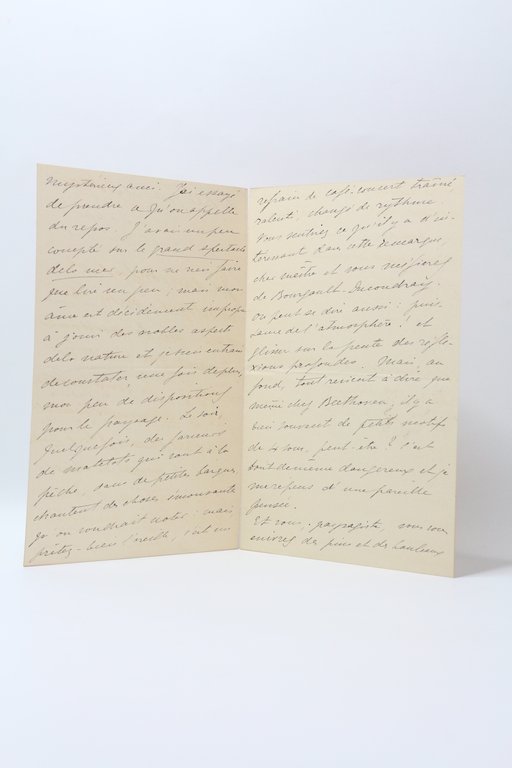 mystérieux aussi. J'ai essayé
de prendre ce qu'on appelle
du repos. J'avais un peu
compté sur le grand spectacle
de la mer, pour ne rien faire
que lire un peu ; mais mon
âme est décidément impropre
à jouir des nobles aspects
de la nature et je suis en train
de constater une fois de plus
mon peu de dispositions
pour le paysage. Le soir,
quelquefois, des
de matelots qui vont à la
pêche, dans de petites barques,
chantent des choses émouvantes
qu'on voudrait noter : mais,
prêtez-bien l'oreille, c'est un
refrain de café-concert traîné
ralenti, changé de rythme.
Vous sentirez ce qu'il y a d'in-
téressant dans cette remarque,
cher maître et vous
de Bourgault-Ducoudray.
On peut se dire aussi : puis-
sance de l'atmosphère ! et
glisser sur la pente des réfle-
xions profondes. Mais au
fond, tout revient à dire que
même chez Beethoven, il y a
bien souvent de petits motifs
de 4 sous, peut-être ? C'est
tout de même dangereux et je
me repens d'une pareille
pensée.
Et vous, paysagiste, vous vous
enivrez des pins et des hauteurs